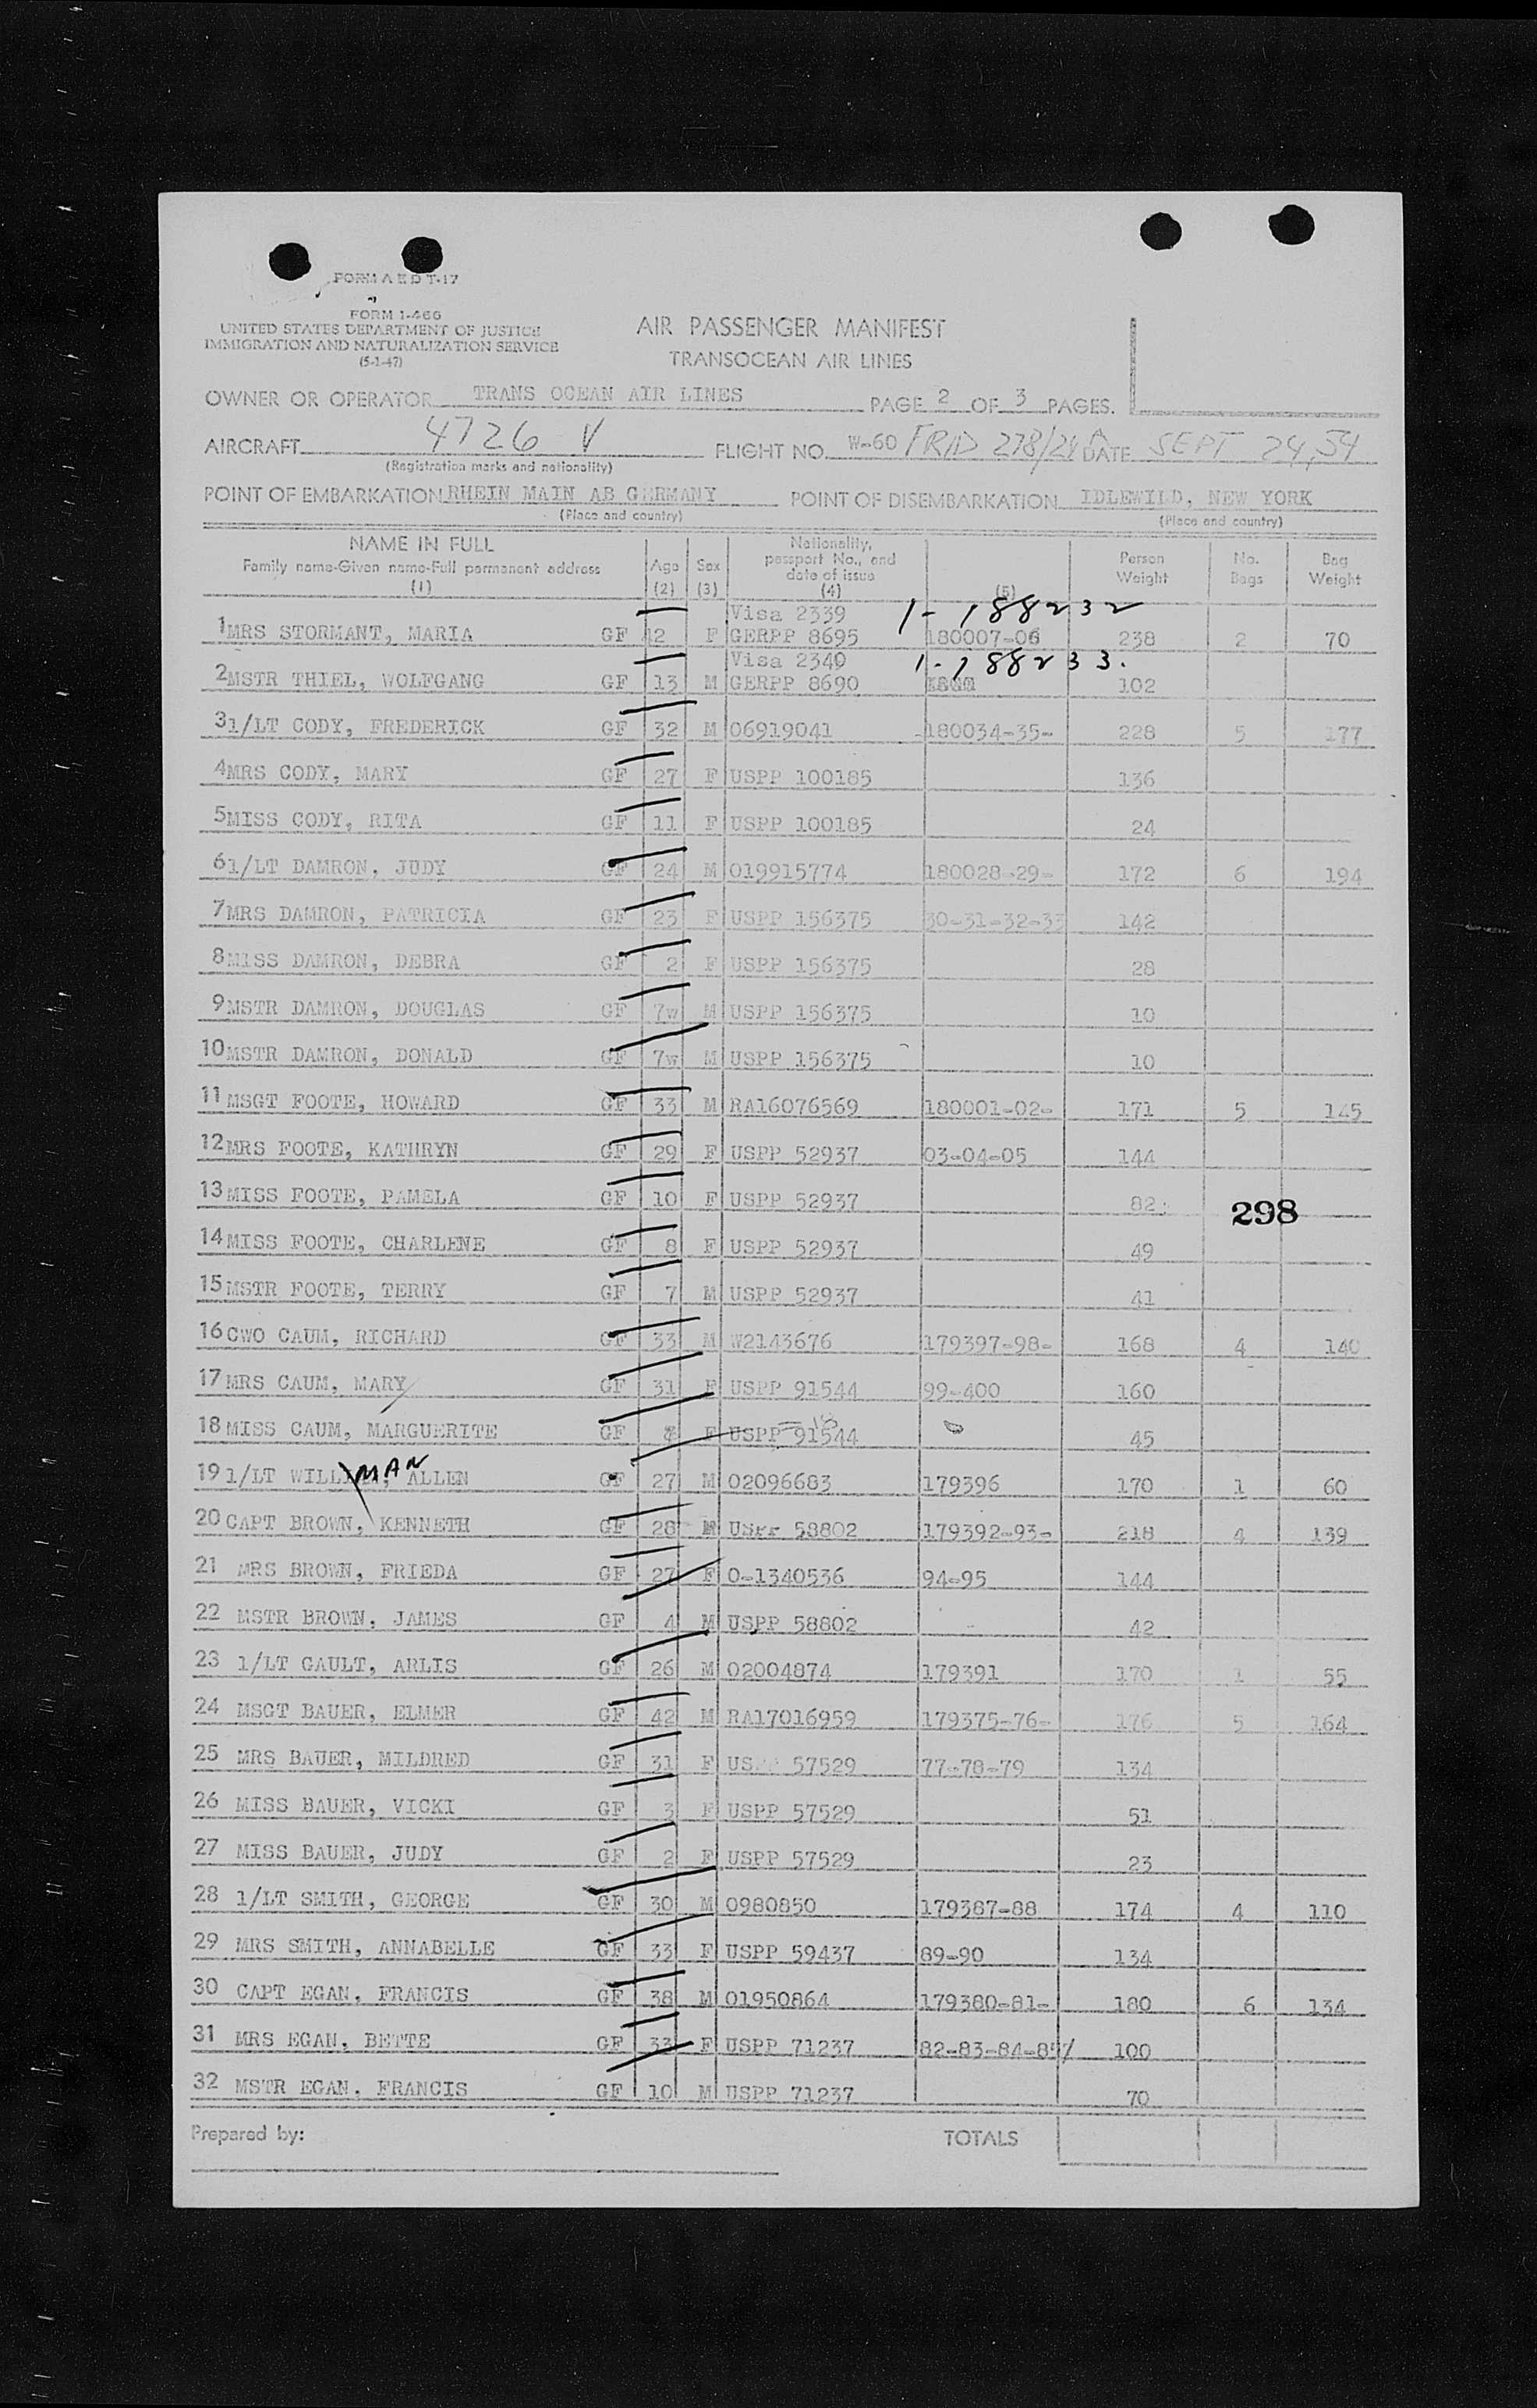 FORM A E D T-17
FORM I-466
UNITED STATES DEPARTMENT OF JUSTICE
IMMIGRATION AND NATURALIZATION SERVICE
(5-1-47)
AIR PASSENGER MANIFEST
TRANSOCEAN AIR LINES
OWNER OR OPERATOR TRANS OCEAN AIR LINES PAGE 2 OF 3 PAGES.
AIRCRAFT 4726 V FLIGHT NO. W-60 FRID 278/24 A DATE SEPT 24, 54
(Registration marks and nationality)
POINT OF EMBARKATION RHEIN MAIN AB GERMANY POINT OF DISEMBARKATION IDLEWILD, NEW YORK
(Place and country) (Place and country)
NAME IN FULL
Family name-Given name-Full permanent address
(1)
Age
(2)
Sex
(3)
Nationality,
passport No., and
date of issue
(4)
(5)
Person
Weight
No.
Bags
Bag
Weight
Visa 2339 1-188232
1 MRS STORMANT, MARIA GF 42 F GERPP 8695 180007-06 238 2 70
Visa 2340 1-188233.
2 MSTR THIEL, WOLFGANG GF 13 M GERPP 8690 102
3 1/LT CODY, FREDERICK GF 32 M 06919041 180034-35- 228 5 177
4 MRS CODY, MARY GF 27 F USPP 100185 136
5 MISS CODY, RITA GF 11 F USPP 100185 24
6 1/LT DAMRON, JUDY GF 24 M 019915774 180028-29- 172 6 194
7 MRS DAMRON, PATRICIA GF 23 F USPP 156375 30-31-32-33 142
8 MISS DAMRON, DEBRA GF 2 F USPP 156375 28
9 MSTR DAMRON, DOUGLAS GF 7w M USPP 156375 10
10 MSTR DAMRON, DONALD GF 7w M USPP 156375 10
11 MSGT FOOTE, HOWARD GF 33 M RA16076569 180001-02- 171 5 145
12 MRS FOOTE, KATHRYN GF 29 F USPP 52937 03-04-05 144
13 MISS FOOTE, PAMELA GF 10 F USPP 52937 82 298
14 MISS FOOTE, CHARLENE GF 8 F USPP 52937 49
15 MSTR FOOTE, TERRY GF 7 M USPP 52937 41
16 CWO CAUM, RICHARD GF 33 M W2143676 179397-98- 168 4 140
17 MRS CAUM, MARY GF 31 F USPP 91544 99-400 160
18 MISS CAUM, MARGUERITE GF F USPP 91544 45
19 1/LT WILLMAN, ALLEN GF 27 M 02096683 179396 170 1 60
20 CAPT BROWN, KENNETH GF 28 M USPP 58802 179392-93- 218 4 139
21 MRS BROWN, FRIEDA GF 27 F O-1340536 94-95 144
22 MSTR BROWN, JAMES GF 4 M USPP 58802 42
23 1/LT GAULT, ARLIS GF 26 M 02004874 179391 170 1 55
24 MSGT BAUER, ELMER GF 42 M RA17016959 179375-76- 176 5 164
25 MRS BAUER, MILDRED GF 31 F USPP 57529 77-78-79 134
26 MISS BAUER, VICKI GF 3 F USPP 57529 51
27 MISS BAUER, JUDY GF 2 F USPP 57529 23
28 1/LT SMITH, GEORGE GF 30 M 0980850 179387-88 174 4 110
29 MRS SMITH, ANNABELLE GF 33 F USPP 59437 89-90 134
30 CAPT EGAN, FRANCIS GF 38 M 01950864 179380-81- 180 6 134
31 MRS EGAN, BETTE GF 33 F USPP 71237 82-83-84-85/ 100
32 MSTR EGAN, FRANCIS GF 10 M USPP 71237 70
Prepared by: TOTALS